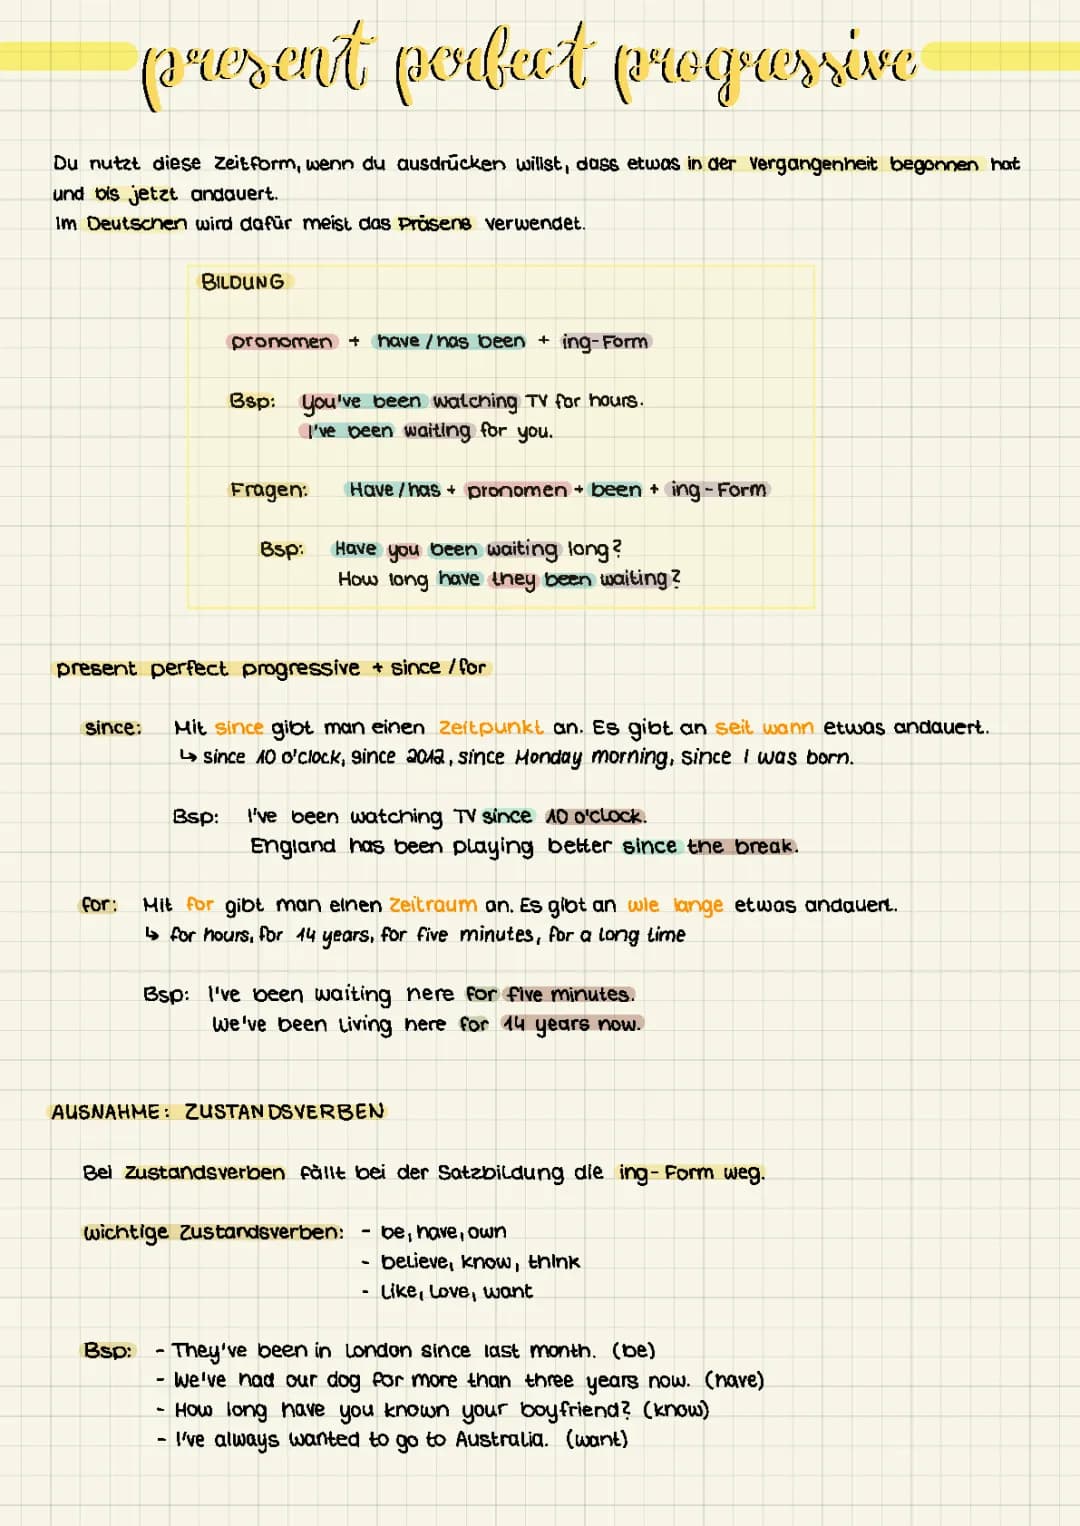 present perfect progressive
Du nutzt diese Zeitform, wenn du ausdrücken willst, dass etwas in der Vergangenheit begonnen hat
und bis jetzt andauert.
Im Deutschen wird dafür meist das Präsens verwendet.
BILDUNG
pronomen + have / has been + ing-Form
Bsp: You've been watching TV for hours.
I've been waiting for you.
Fragen: Have / has + pronomen + been + ing - Form
Bsp: Have you been waiting long?
How long have they been waiting?
present perfect progressive + since / for
since: Mit since gibt man einen Zeitpunkt an. Es gibt an seit wann etwas andauert.
↳ since 10 o'clock, since 2012, since Monday morning, since I was born.
Bsp: I've been watching TV since 10 o'clock.
England has been playing better since the break.
for: Mit for gibt man einen Zeitraum an. Es gibt an wie lange etwas andauert.
↳ for hours, for 14 years, for five minutes, for a long time
Bsp: I've been waiting here for five minutes.
We've been living here for 14 years now.
AUSNAHME: ZUSTANDSVERBEN
Bei Zustandsverben fällt bei der Satzbildung die ing-Form weg.
wichtige Zustandsverben: - be, have, own
- believe, know, think
- like, love, want
Bsp: - They've been in London since last month. (be)
- We've had our dog for more than three years now. (have)
- How long have you known your boyfriend? (know)
- I've always wanted to go to Australia. (want)